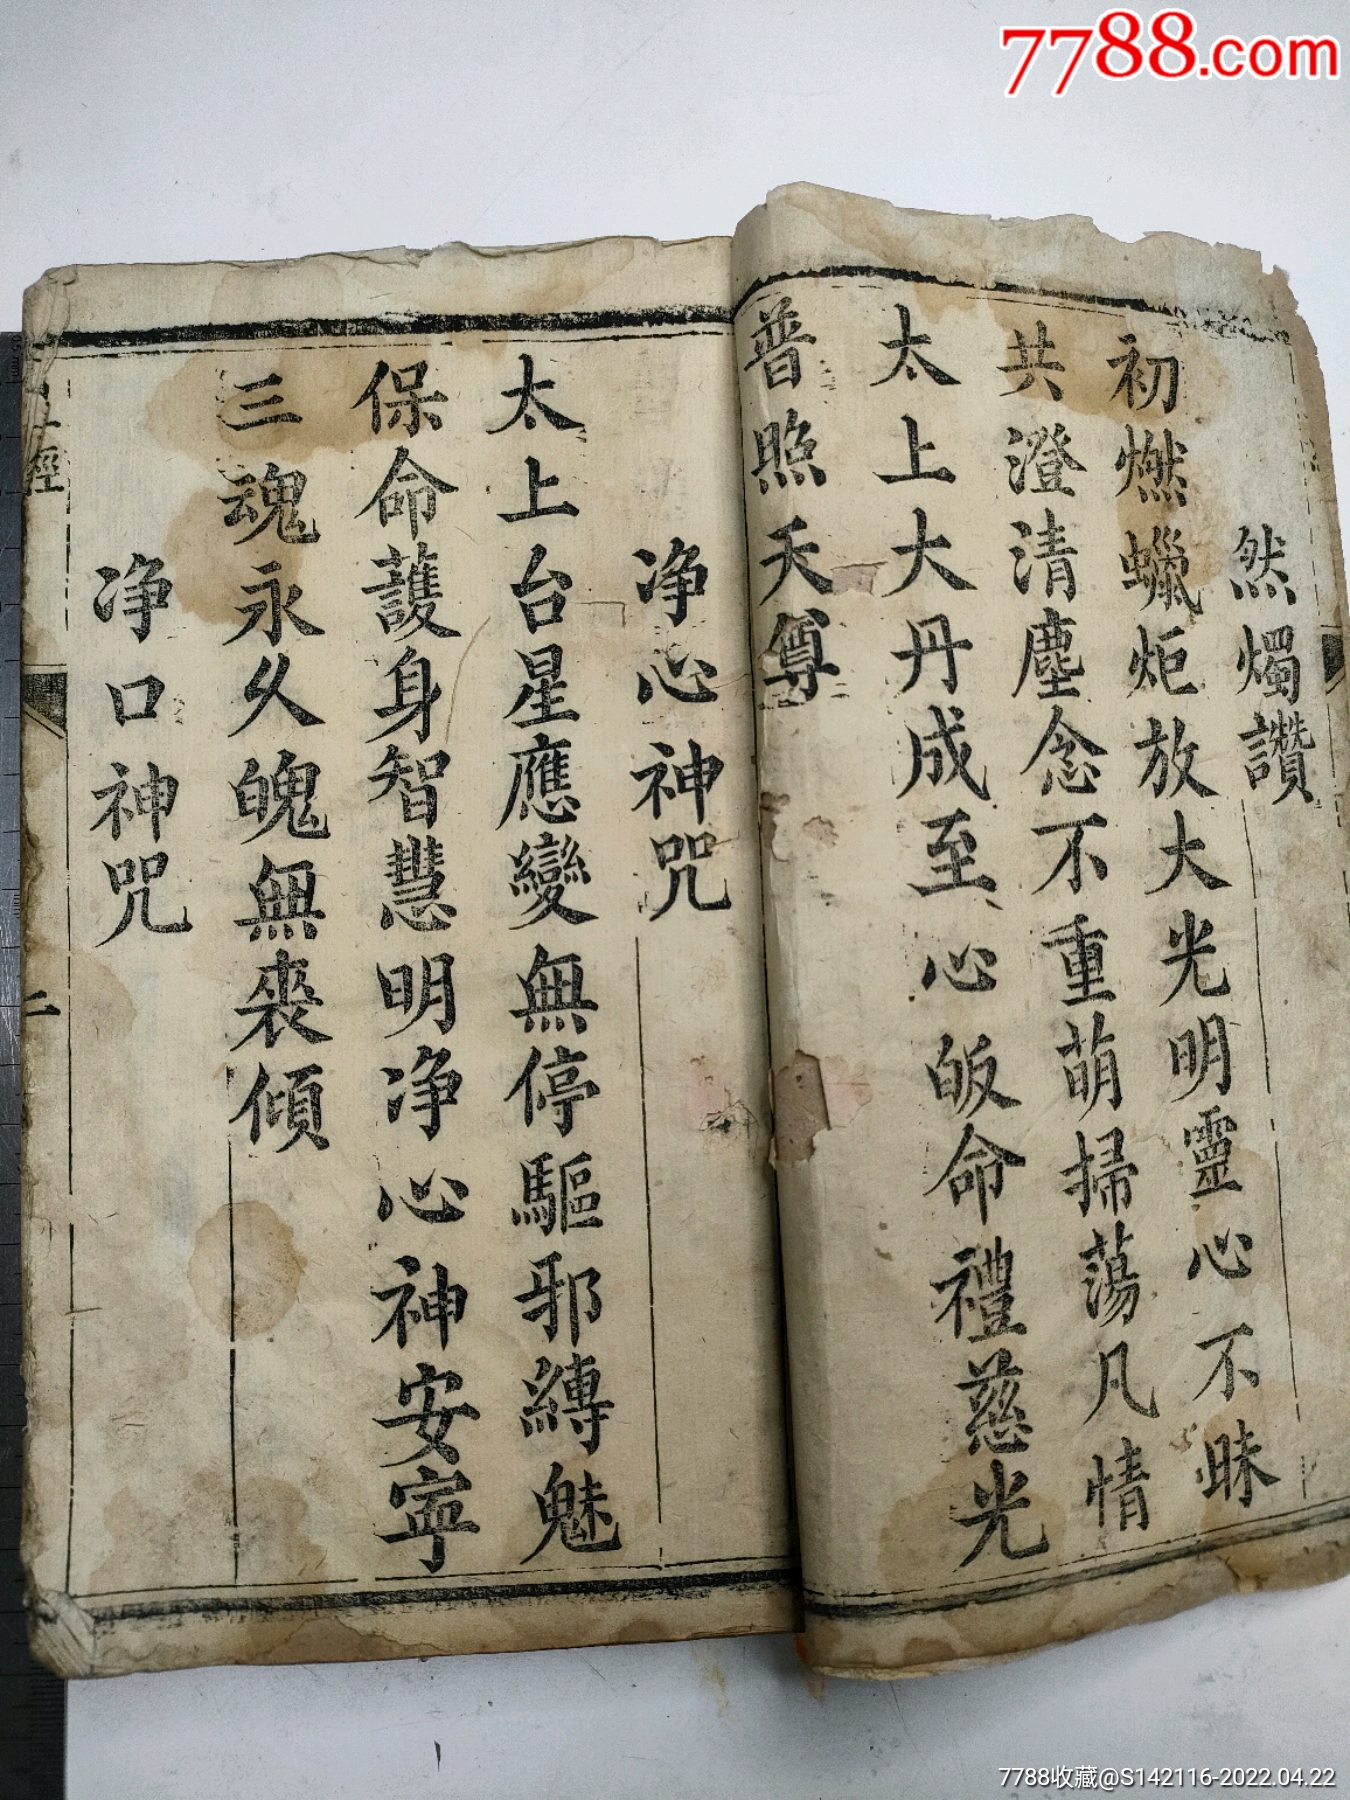 7788.com
然燭讚
初燃蠟炬放大光明靈心不昧
共澄清塵念不重萌掃蕩凡情
太上大丹成至心皈命禮慈光
普照天尊
净心神咒
太上台星應變無停驅邪縛魅
保命護身智慧明净心神安寜
三魂永久魄無喪傾
净口神咒
經
二
7788收藏@S142116-2022.04.22